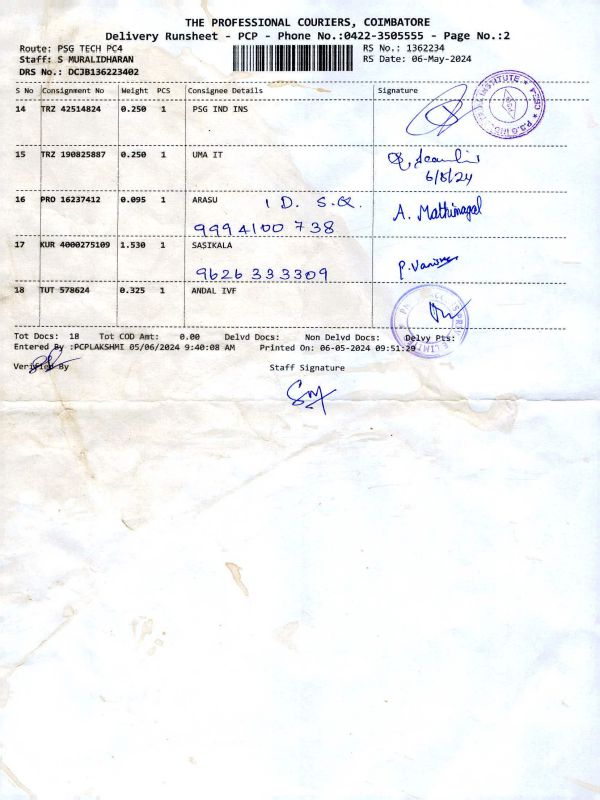 THE PROFESSIONAL COURIERS, COIMBATORE
Delivery Runsheet - PCP - Phone No.:0422-3505555 - Page No.:2
Route: PSG TECH PC4 RS No.: 1362234
Staff: S MURALIDHARAN RS Date: 06-May-2024
DRS No.: DCJB136223402
S No Consignment No Weight PCS Consignee Details Signature
14 TRZ 42514824 0.250 1 PSG IND INS
15 TRZ 190825887 0.250 1 UMA IT
6/5/24
16 PRO 16237412 0.095 1 ARASU 1 D. S.Q. A. Mathimagal
9994100738
17 KUR 4000275109 1.530 1 SASIKALA P.
9626333309
18 TUT 578624 0.325 1 ANDAL IVF
Tot Docs: 18 Tot COD Amt: 0.00 Delvd Docs: Non Delvd Docs: Delvy Pts:
Entered By :PCPLAKSHMI 05/06/2024 9:40:08 AM Printed On: 06-05-2024 09:51:29
Verified By Staff Signature